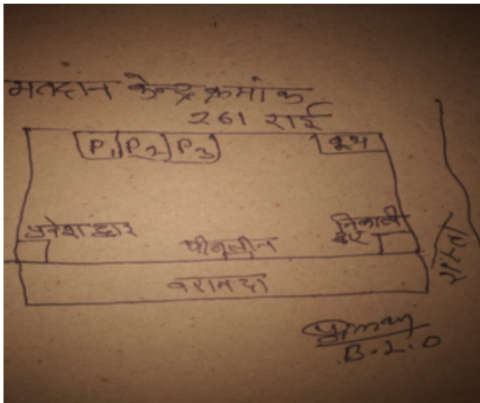 मतदान केन्द्र क्रमांक
261 राई
P1 P2 P3
बूथ
प्रवेश द्वार
निकासी द्वार
पोलींग
बरामदा
रास्ता
B.L.O